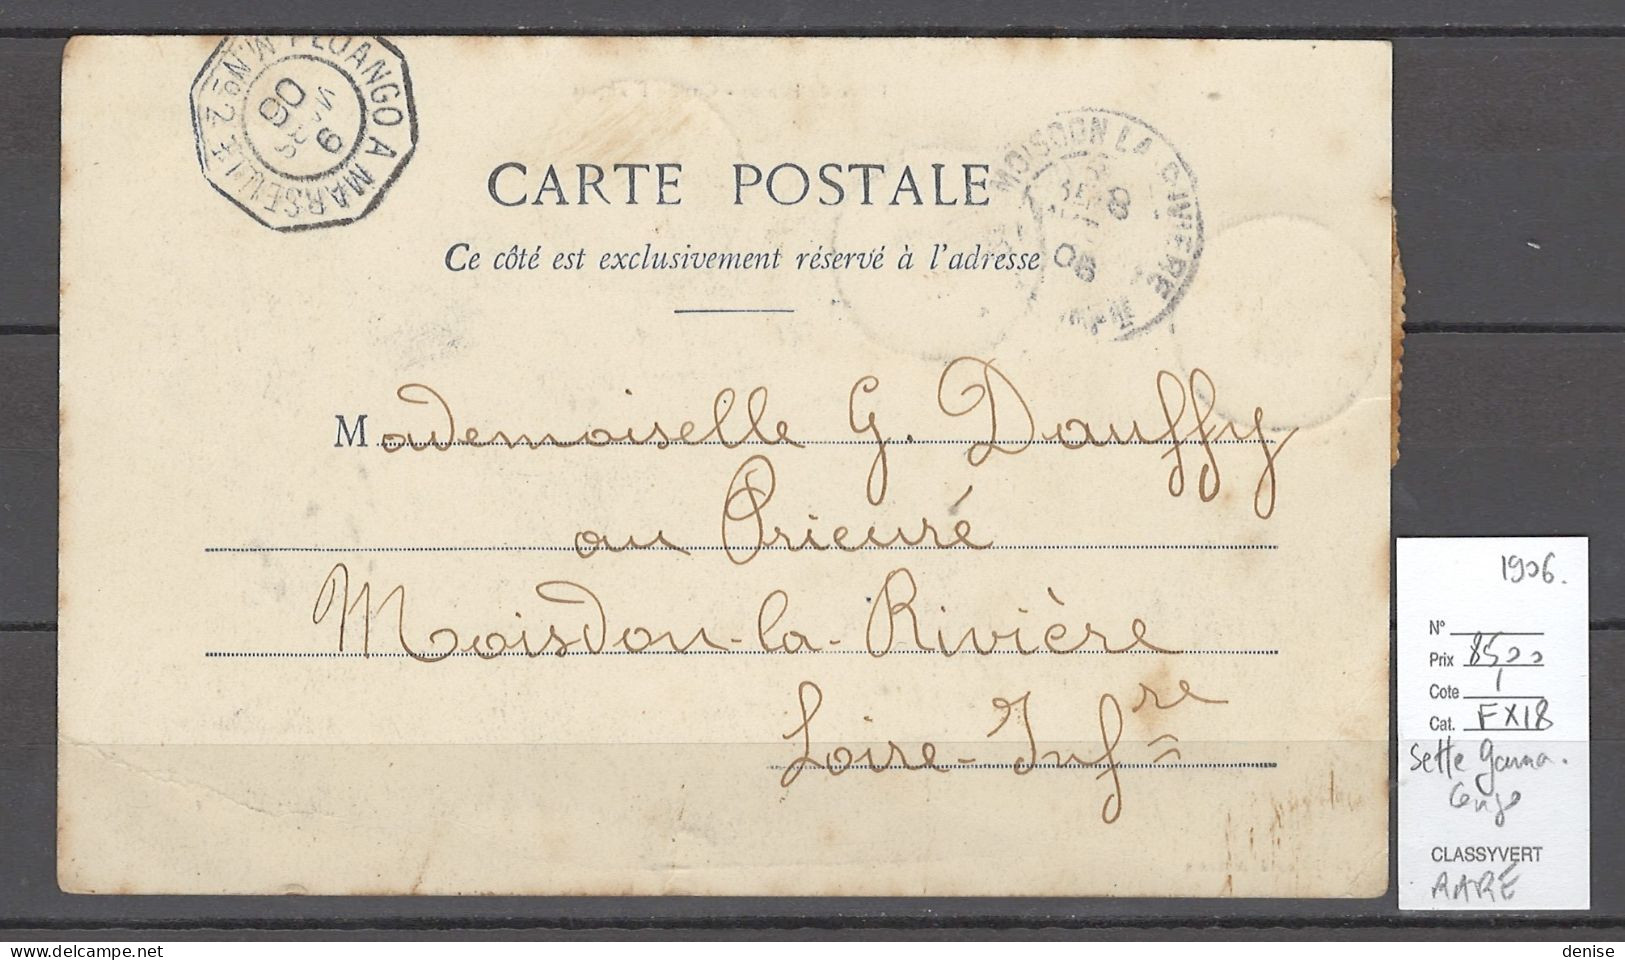 LOANGO A MARSEILLE
Nº 2
9
06
MOISDON LA RIVIERE
8
06
CARTE POSTALE
Ce côté est exclusivement réservé à l'adresse
Mademoiselle G. Dauffy
au Prieuré
Moisdon-la-Rivière
Loire-Infre
1906.
N°
Prix 8500
Cote /
Cat. FX18
Sette Gama.
Congo
CLASSYVERT
RARE
denise